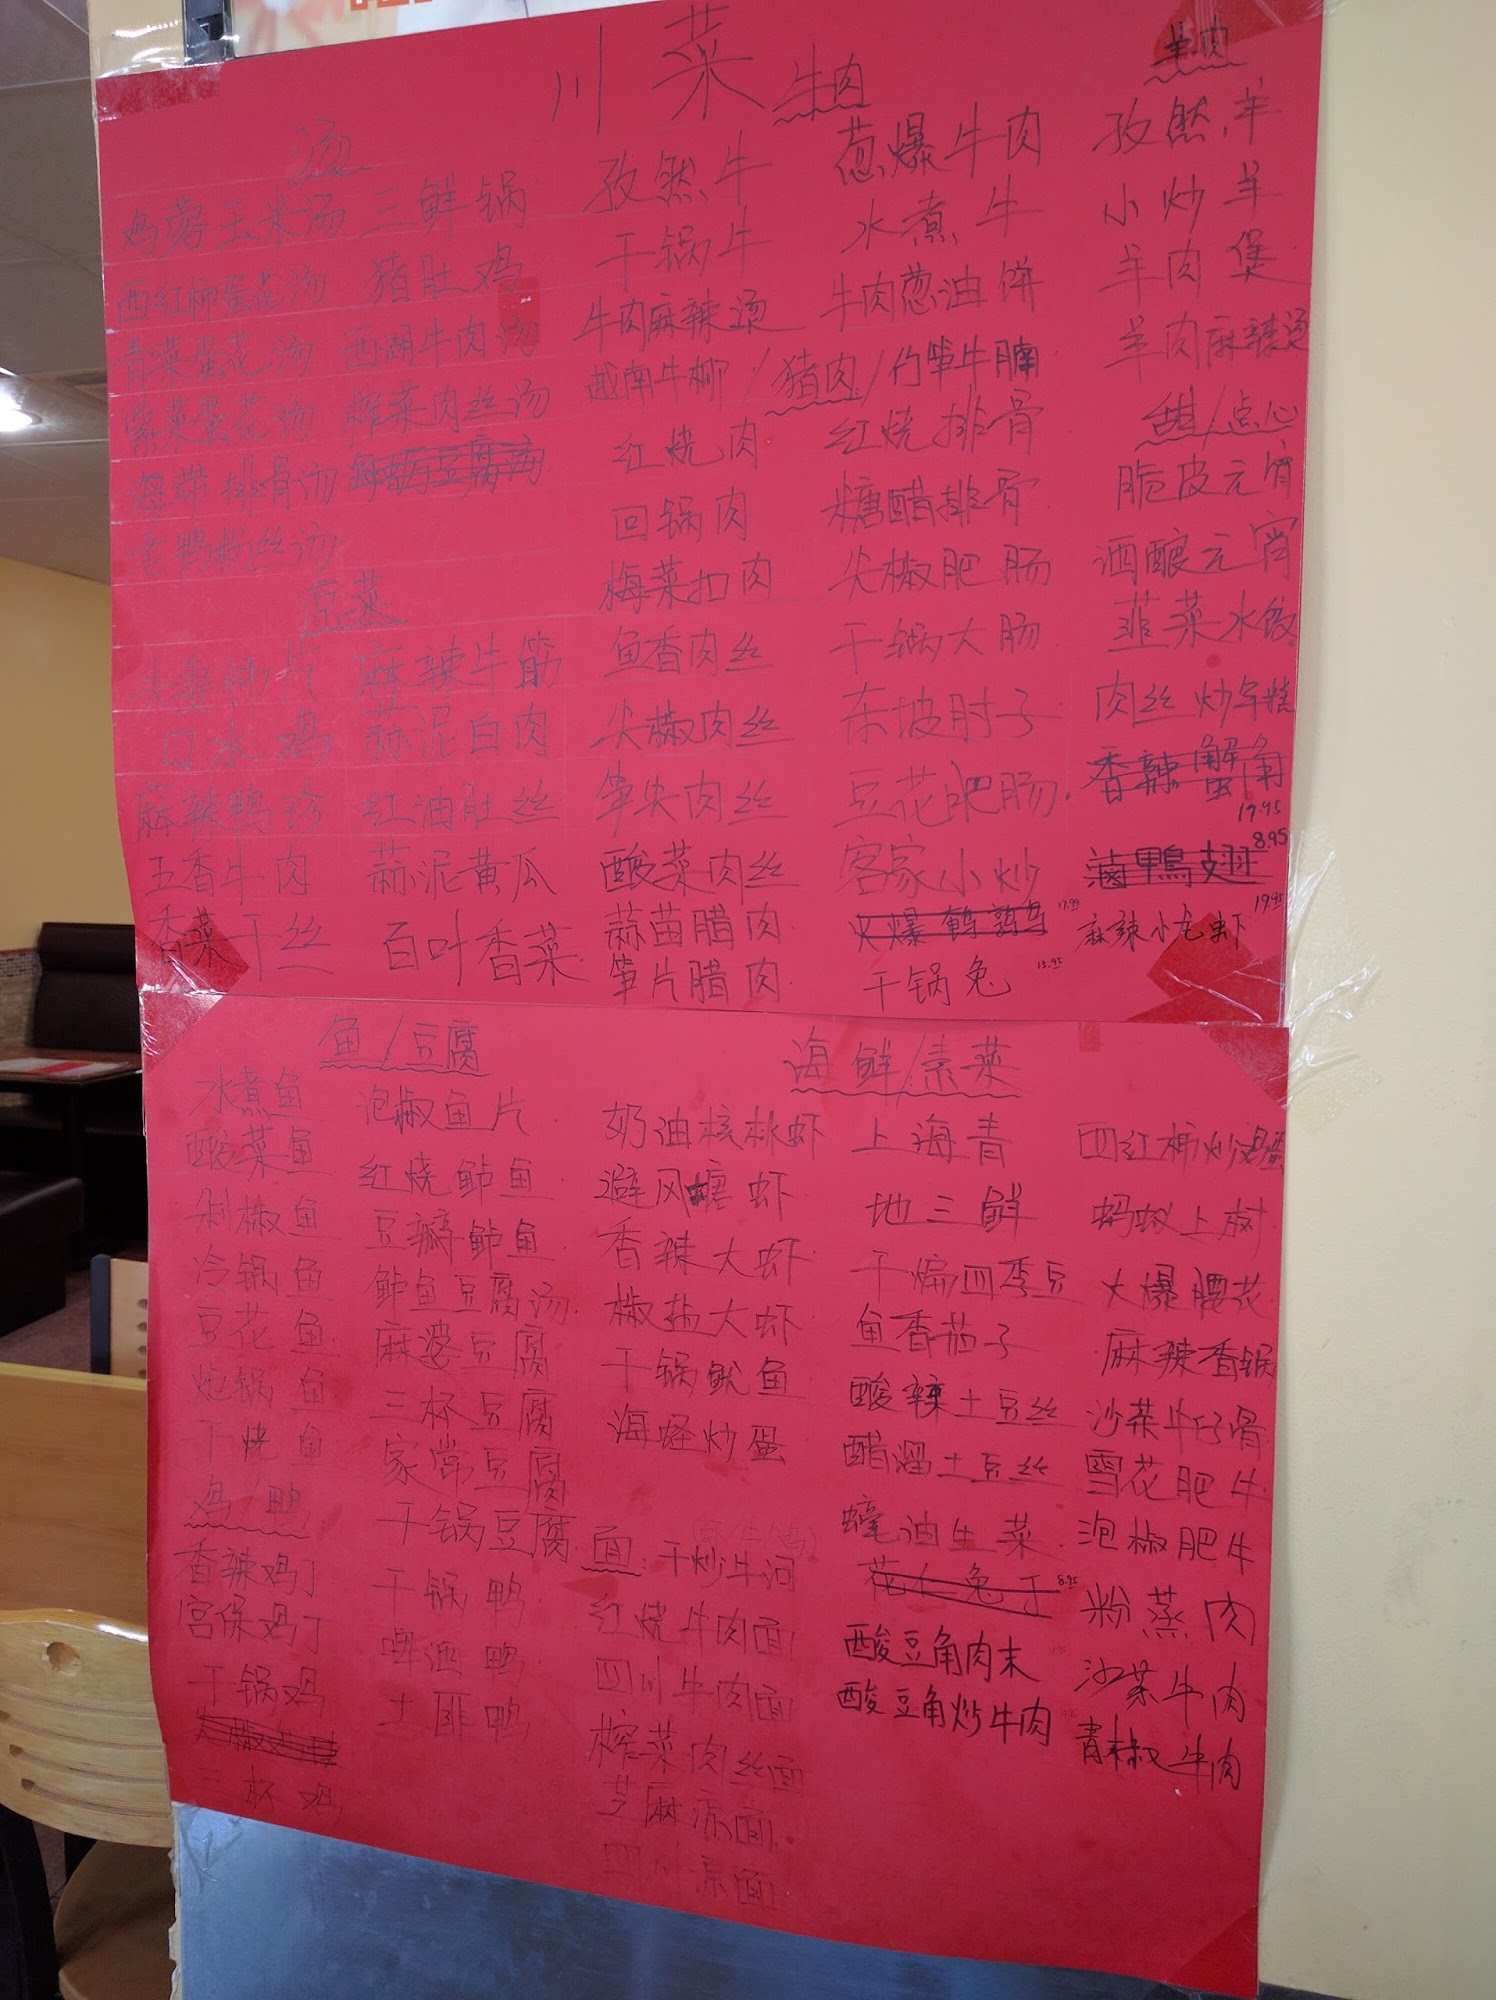 川菜
汤
鸡蓉玉米汤
西红柿蛋花汤
青菜蛋花汤
紫菜蛋花汤
海带排骨汤
老鸭粉丝汤
三鲜锅
猪肚鸡
西湖牛肉汤
榨菜肉丝汤
凉菜
夫妻肺片
口水鸡
麻辣鸭珍
五香牛肉
香菜干丝
麻辣牛筋
蒜泥白肉
红油肚丝
蒜泥黄瓜
百叶香菜
牛肉
孜然牛
干锅牛
牛肉麻辣烫
越南牛柳
葱爆牛肉
水煮牛
牛肉葱油饼
竹笋牛腩
/猪肉/
红烧肉
回锅肉
梅菜扣肉
鱼香肉丝
尖椒肉丝
笋尖肉丝
酸菜肉丝
蒜苗腊肉
笋片腊肉
红烧排骨
糖醋排骨
尖椒肥肠
干锅大肠
东坡肘子
豆花肥肠
客家小炒
火爆鹌鹑 17.99
干锅兔 15.95
羊肉
孜然羊
小炒羊
羊肉煲
羊肉麻辣烫
甜/点心
脆皮元宵
酒酿元宵
韮菜水饺
肉丝炒年糕
香辣蟹角
19.95
滷鴨翅 8.95
麻辣小龙虾 19.95
鱼/豆腐
水煮鱼
酸菜鱼
剁椒鱼
冷锅鱼
豆花鱼
炝锅鱼
干烧鱼
泡椒鱼片
红烧鲈鱼
豆瓣鲈鱼
鲈鱼豆腐汤
麻婆豆腐
三杯豆腐
家常豆腐
干锅豆腐
鸡/鸭
香辣鸡丁
宫保鸡丁
干锅鸡
三杯鸡
干锅鸭
啤酒鸭
土匪鸭
海鲜/素菜
奶油核桃虾
避风塘虾
香辣大虾
椒盐大虾
干锅鱿鱼
海蛏炒蛋
面:干炒牛河
红烧牛肉面
四川牛肉面
榨菜肉丝面
芝麻凉面
四川凉面
上海青
地三鲜
干煸四季豆
鱼香茄子
酸辣土豆丝
醋溜土豆丝
蠔油生菜
花仁兔丁 8.95
酸豆角肉末
酸豆角炒牛肉
西红柿炒鸡蛋
蚂蚁上树
火爆腰花
麻辣香锅
沙茶牛仔骨
雪花肥牛
泡椒肥牛
粉蒸肉
沙茶牛肉
青椒牛肉